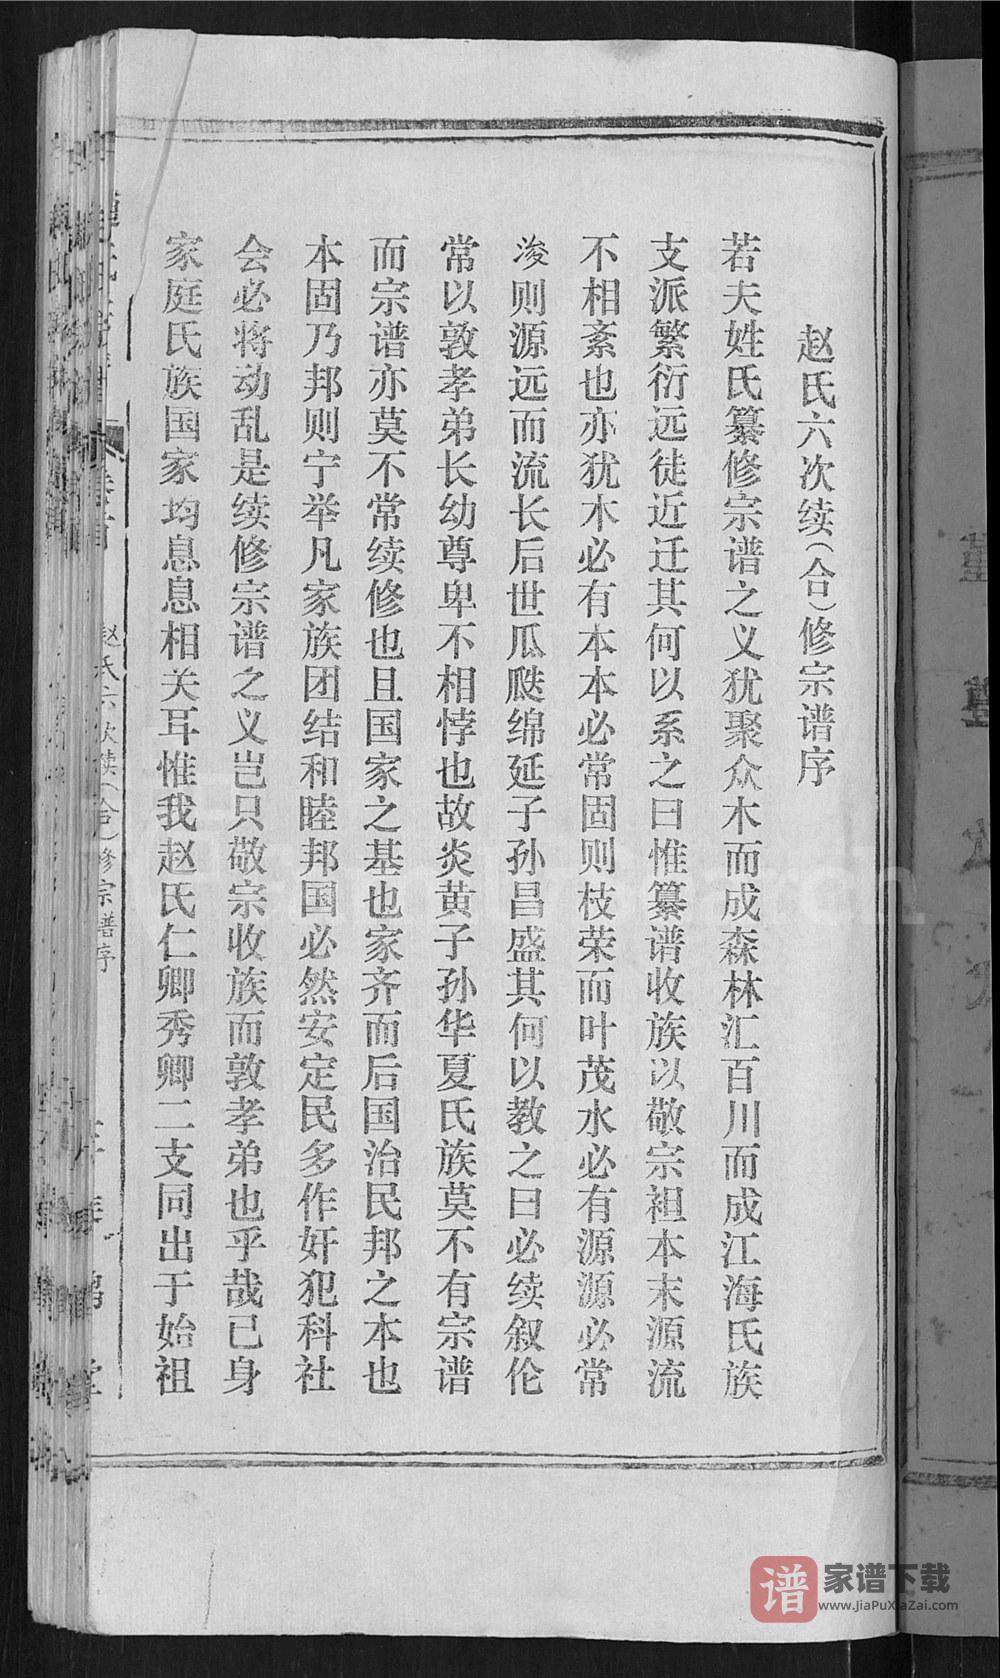 赵氏六次续(合)修宗谱序
若夫姓氏纂修宗谱之义犹聚众木而成森林汇百川而成江海氏族
支派繁衍远徒近迁其何以系之曰惟纂谱收族以敬宗祖本末源流
不相紊也亦犹木必有本本必常固则枝荣而叶茂水必有源源必常
浚则源远而流长后世瓜瓞绵延子孙昌盛其何以教之曰必续叙伦
常以敦孝弟长幼尊卑不相悖也故炎黄子孙华夏氏族莫不有宗谱
而宗谱亦莫不常续修也且国家之基也家齐而后国治民邦之本也
本固乃邦则宁举凡家族团结和睦邦国必然安定民多作奸犯科社
会必将动乱是续修宗谱之义岂只敬宗收族而敦孝弟也乎哉已身
家庭氏族国家均息息相关耳惟我赵氏仁卿秀卿二支同出于始祖
赵氏六次续(合)修宗谱序
谱
家谱下载
www.JiaPuXiaZai.com